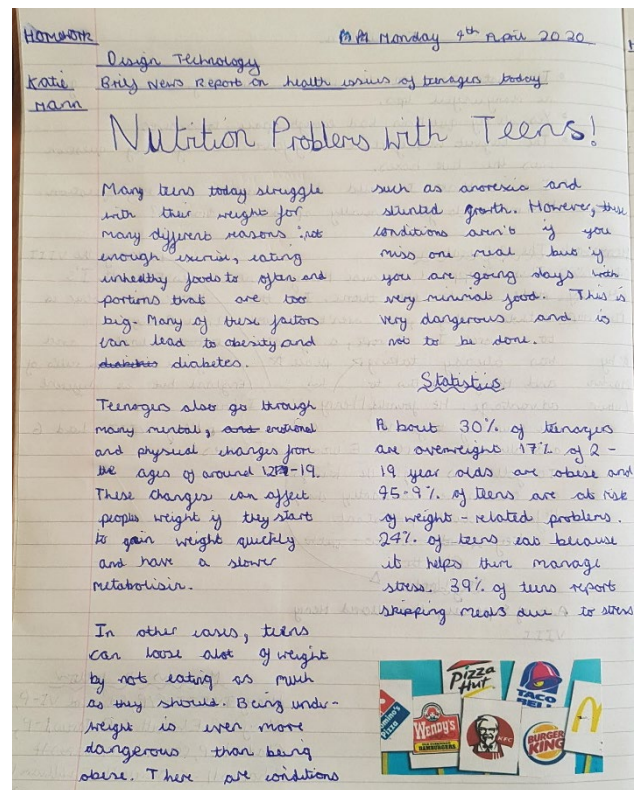 HOMEWORK
Monday 4th April 2020
Design Technology
Katie Mann
Brief News Report on health issues of teenagers today
Nutrition Problems with Teens!
Many teens today struggle
with their weight for
many different reasons: not
enough exercise, eating
unhealthy foods to often and
portions that are too
big. Many of these factors
can lead to obesity and
diabetes.
Teenagers also go through
many mental, emotional
and physical changes from
the ages of around 12-19.
These changes can affect
peoples weight if they start
to gain weight quickly
and have a slower
metabolisim.
In other cases, teens
can loose alot of weight
by not eating as much
as they should. Being under-
weight is even more
dangerous than being
obese. There are conditions
such as anorexia and
stunted growth. However, these
conditions aren't if you
miss one meal but if
you are going days with
very minimal food. This is
very dangerous and is
not to be done.
Statistics
About 30% of teenagers
are overweight 17% of 2-
19 year olds are obese and
45-9% of teens are at risk
of weight-related problems.
24% of teens eat because
it helps them manage
stress. 39% of teens report
skipping meals due to stress
Domino's Pizza
Pizza Hut
TACO BELL
Wendy's
OLD FASHIONED HAMBURGERS
KFC
BURGER KING
M